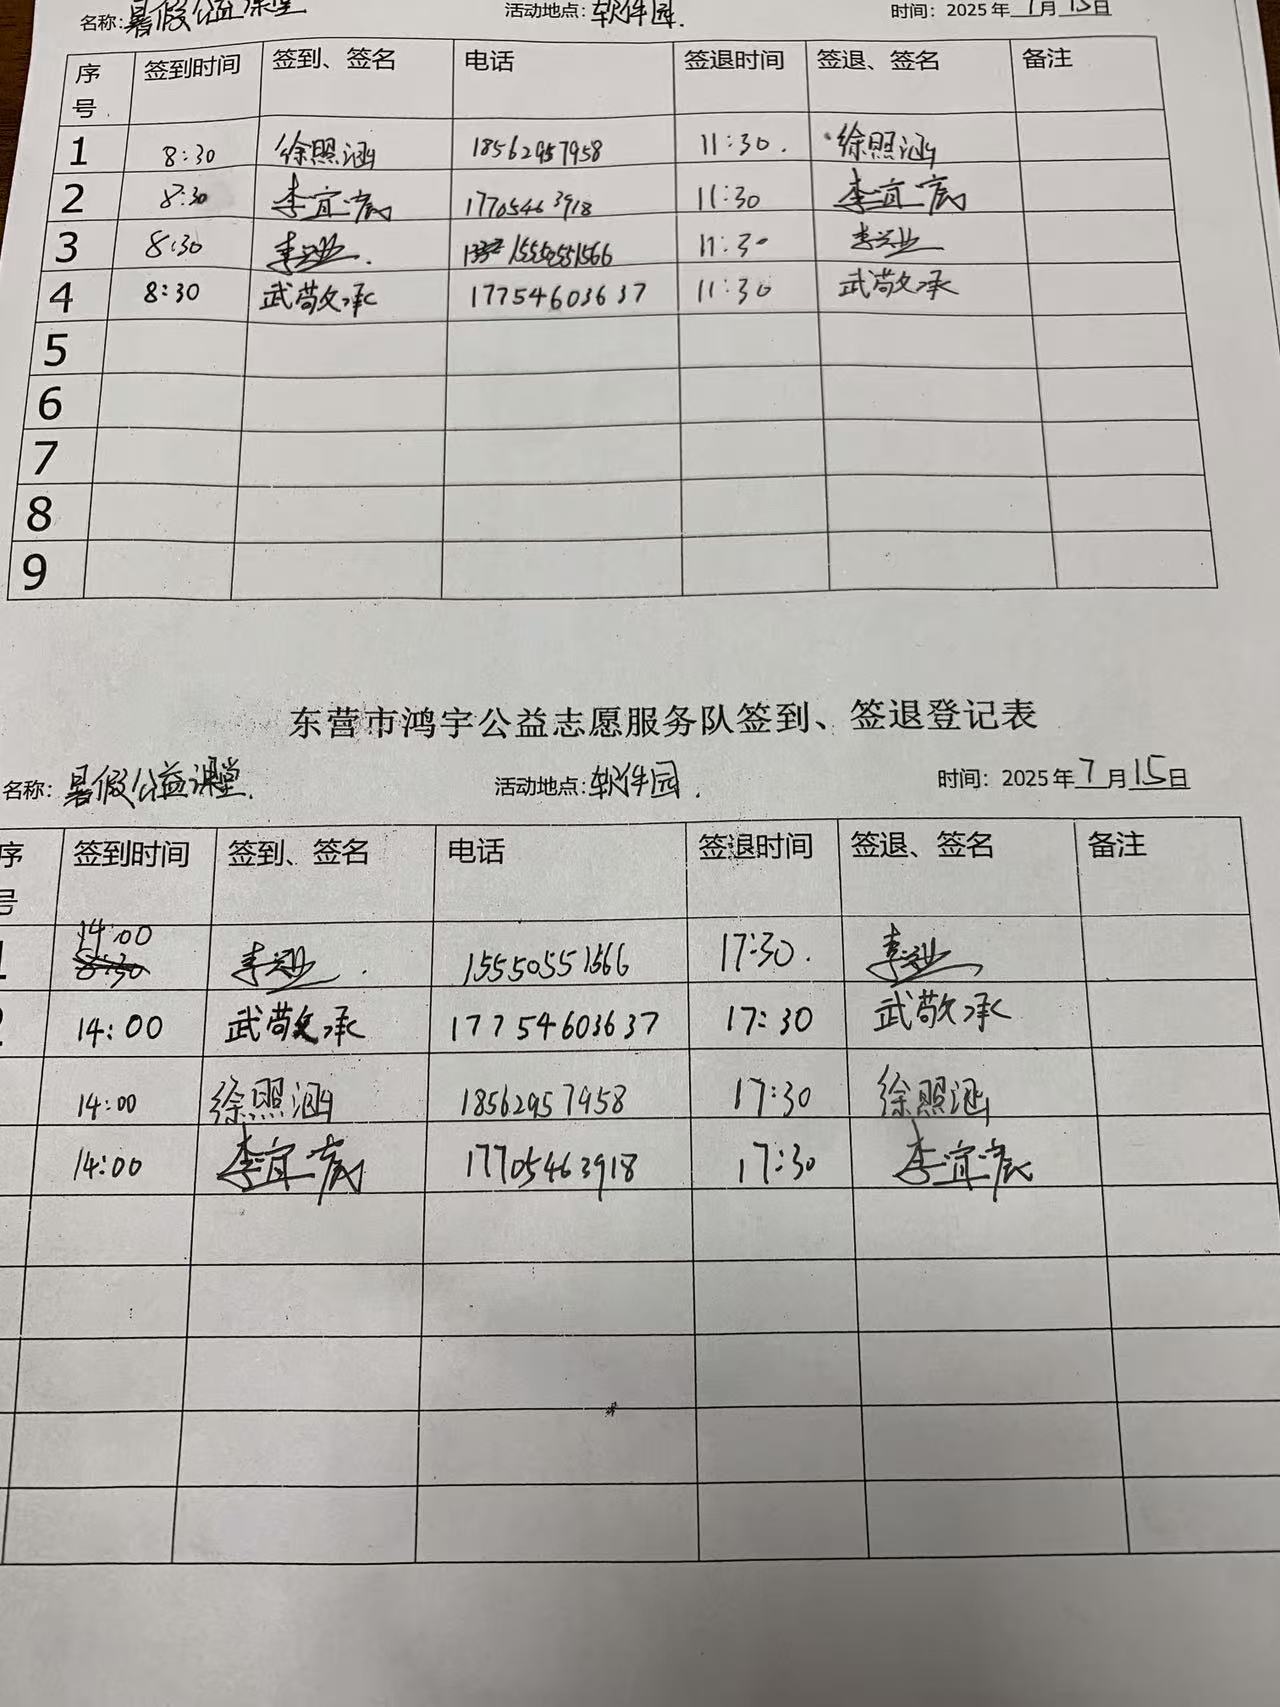 名称:暑假公益课堂 活动地点:软件园. 时间: 2025年7月15日
序号 签到时间 签到、签名 电话 签退时间 签退、签名 备注
1 8:30 徐照涵 18562957958 11:30. 徐照涵
2 8:30 李宜宸 17705463918 11:30 李宜宸
3 8:30 李兴业. 15550551566 11:30 李兴业
4 8:30 武敬承 17754603637 11:30 武敬承
5
6
7
8
9
东营市鸿宇公益志愿服务队签到、签退登记表
名称:暑假公益课堂. 活动地点:软件园. 时间: 2025年7月15日
序号 签到时间 签到、签名 电话 签退时间 签退、签名 备注
1 14:00 8:30 李兴业. 15550551566 17:30. 李兴业
2 14:00 武敬承 17754603637 17:30 武敬承
14:00 徐照涵 18562957958 17:30 徐照涵
14:00 李宜宸 17705463918 17:30 李宜宸